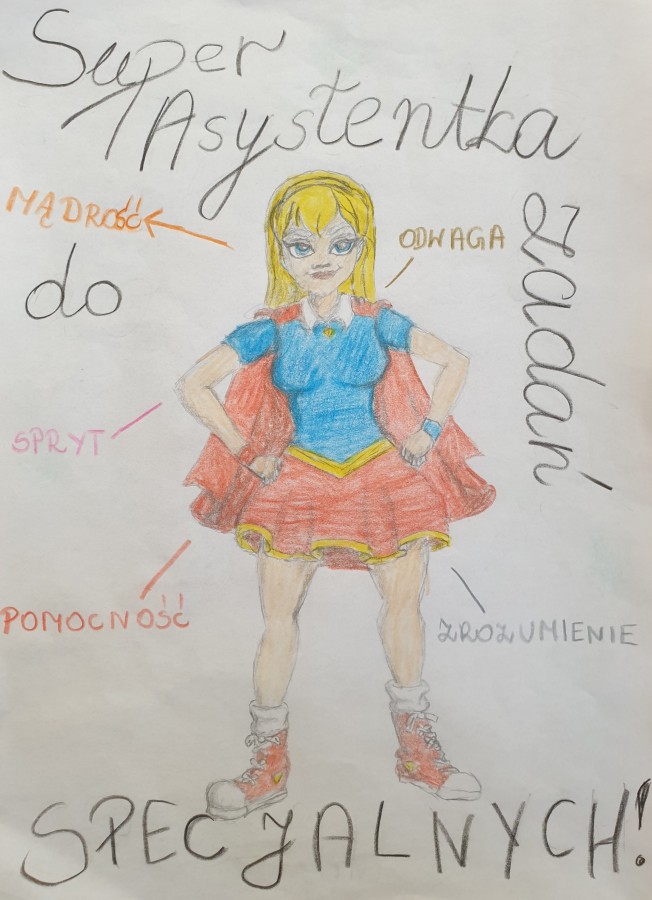 Super
Asystentka
do
zadań
SPECJALNYCH!
MĄDROŚĆ
ODWAGA
SPRYT
POMOCNOŚĆ
ZROZUMIENIE